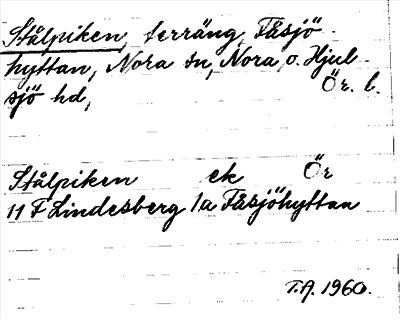 Stålpiken, terräng, Fåsjö-
hyttan, Nora sn, Nora o. Hjul-
sjö hd, Ör. l.
Stålpiken ek Ör
11 F Lindesberg 1a Fåsjöhyttan
T.A. 1960.